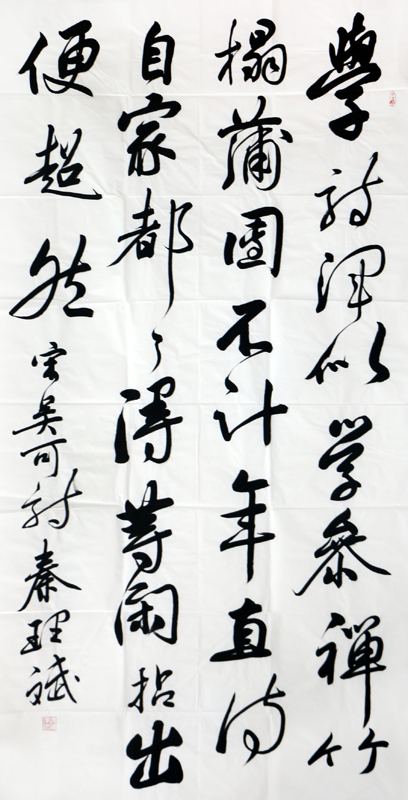 學詩渾似学參禪竹
榻蒲團不計年直待
自家都了得等閑拈出
便超然宋吴可詩秦理斌